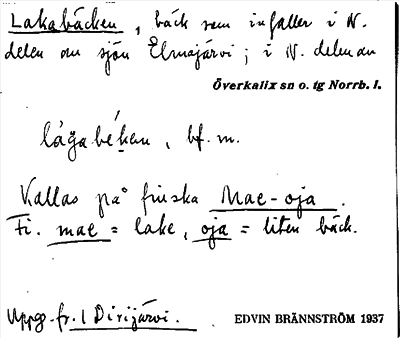 Lakabäcken, bäck som infaller i N.
delen av sjön Elmajärvi; i N. delen av
Överkalix sn o. tg Norrb. l.
bf. m.
Kallas på finska Mae-oja.
Fi. mae = lake, oja = liten bäck.
Uppg. fr. 1 Dirijärvi.
EDVIN BRÄNNSTRÖM 1937